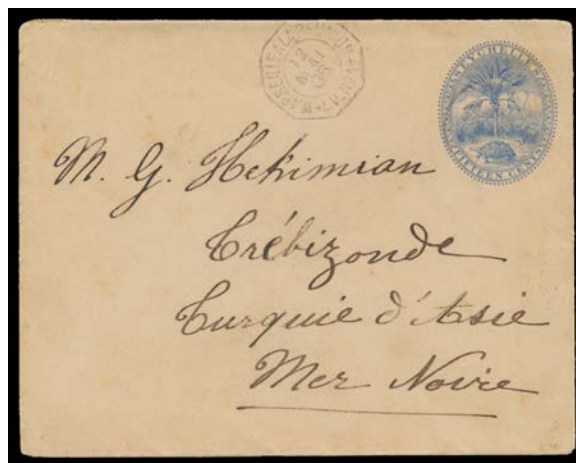 SEYCHELLES
FIFTEEN CENTS
M. G. Hekimian
Trébizonde
Turquie d'Asie
Mer Noire